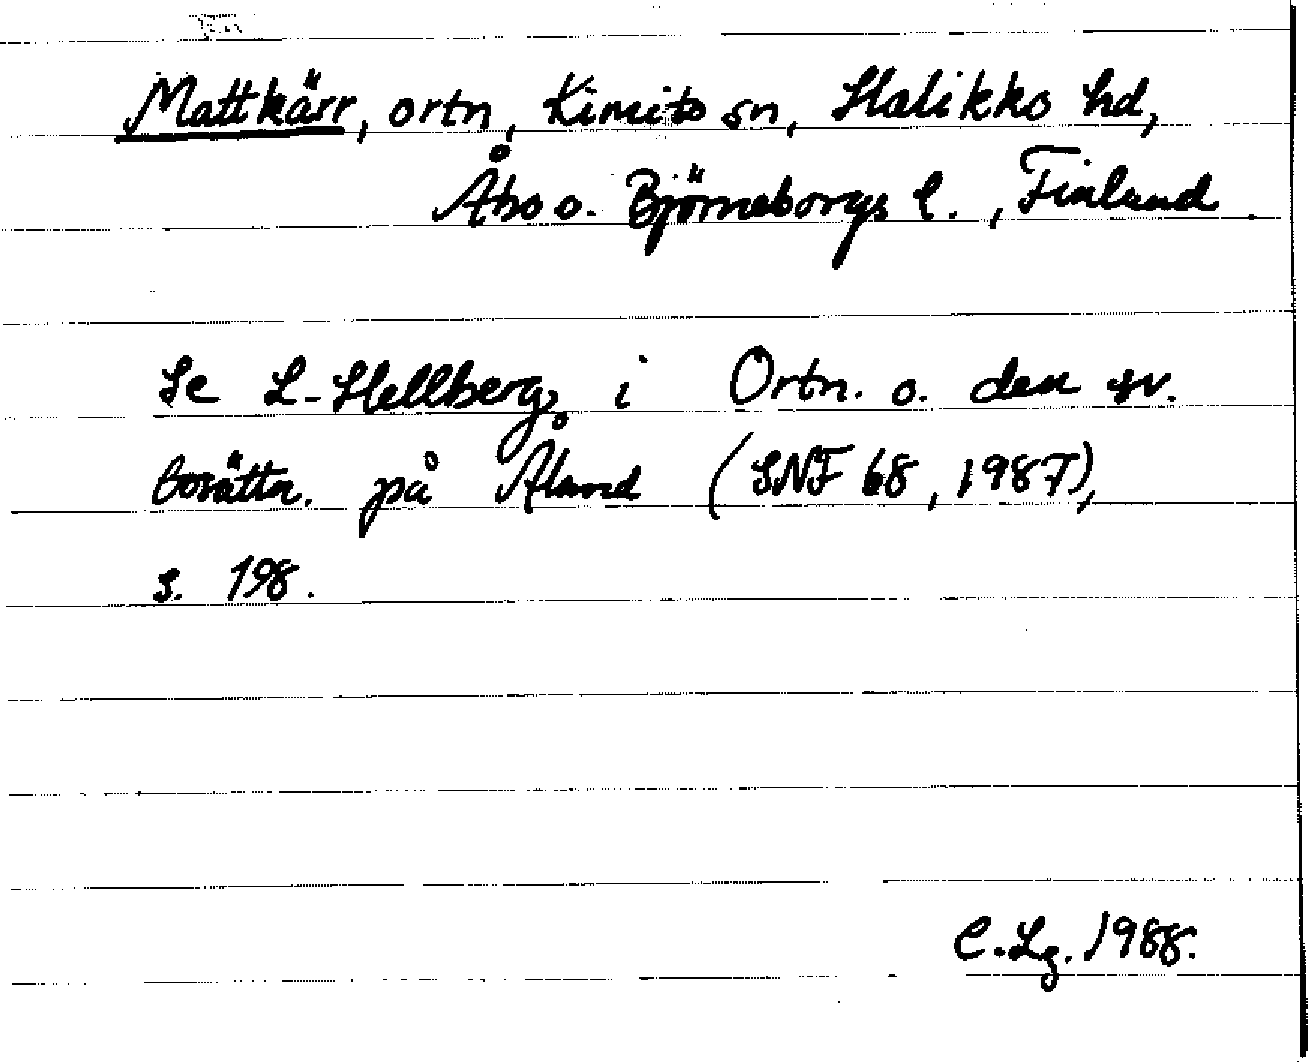 Mattkärr, ortn, Kimito sn, Halikko hd,
Åbo o. Björneborgs l., Finland.
Se L. Hellberg, i Ortn. o. den sv.
bosättn. på Åland (SNF 68, 1987),
s. 198.
C. Lg. 1988.